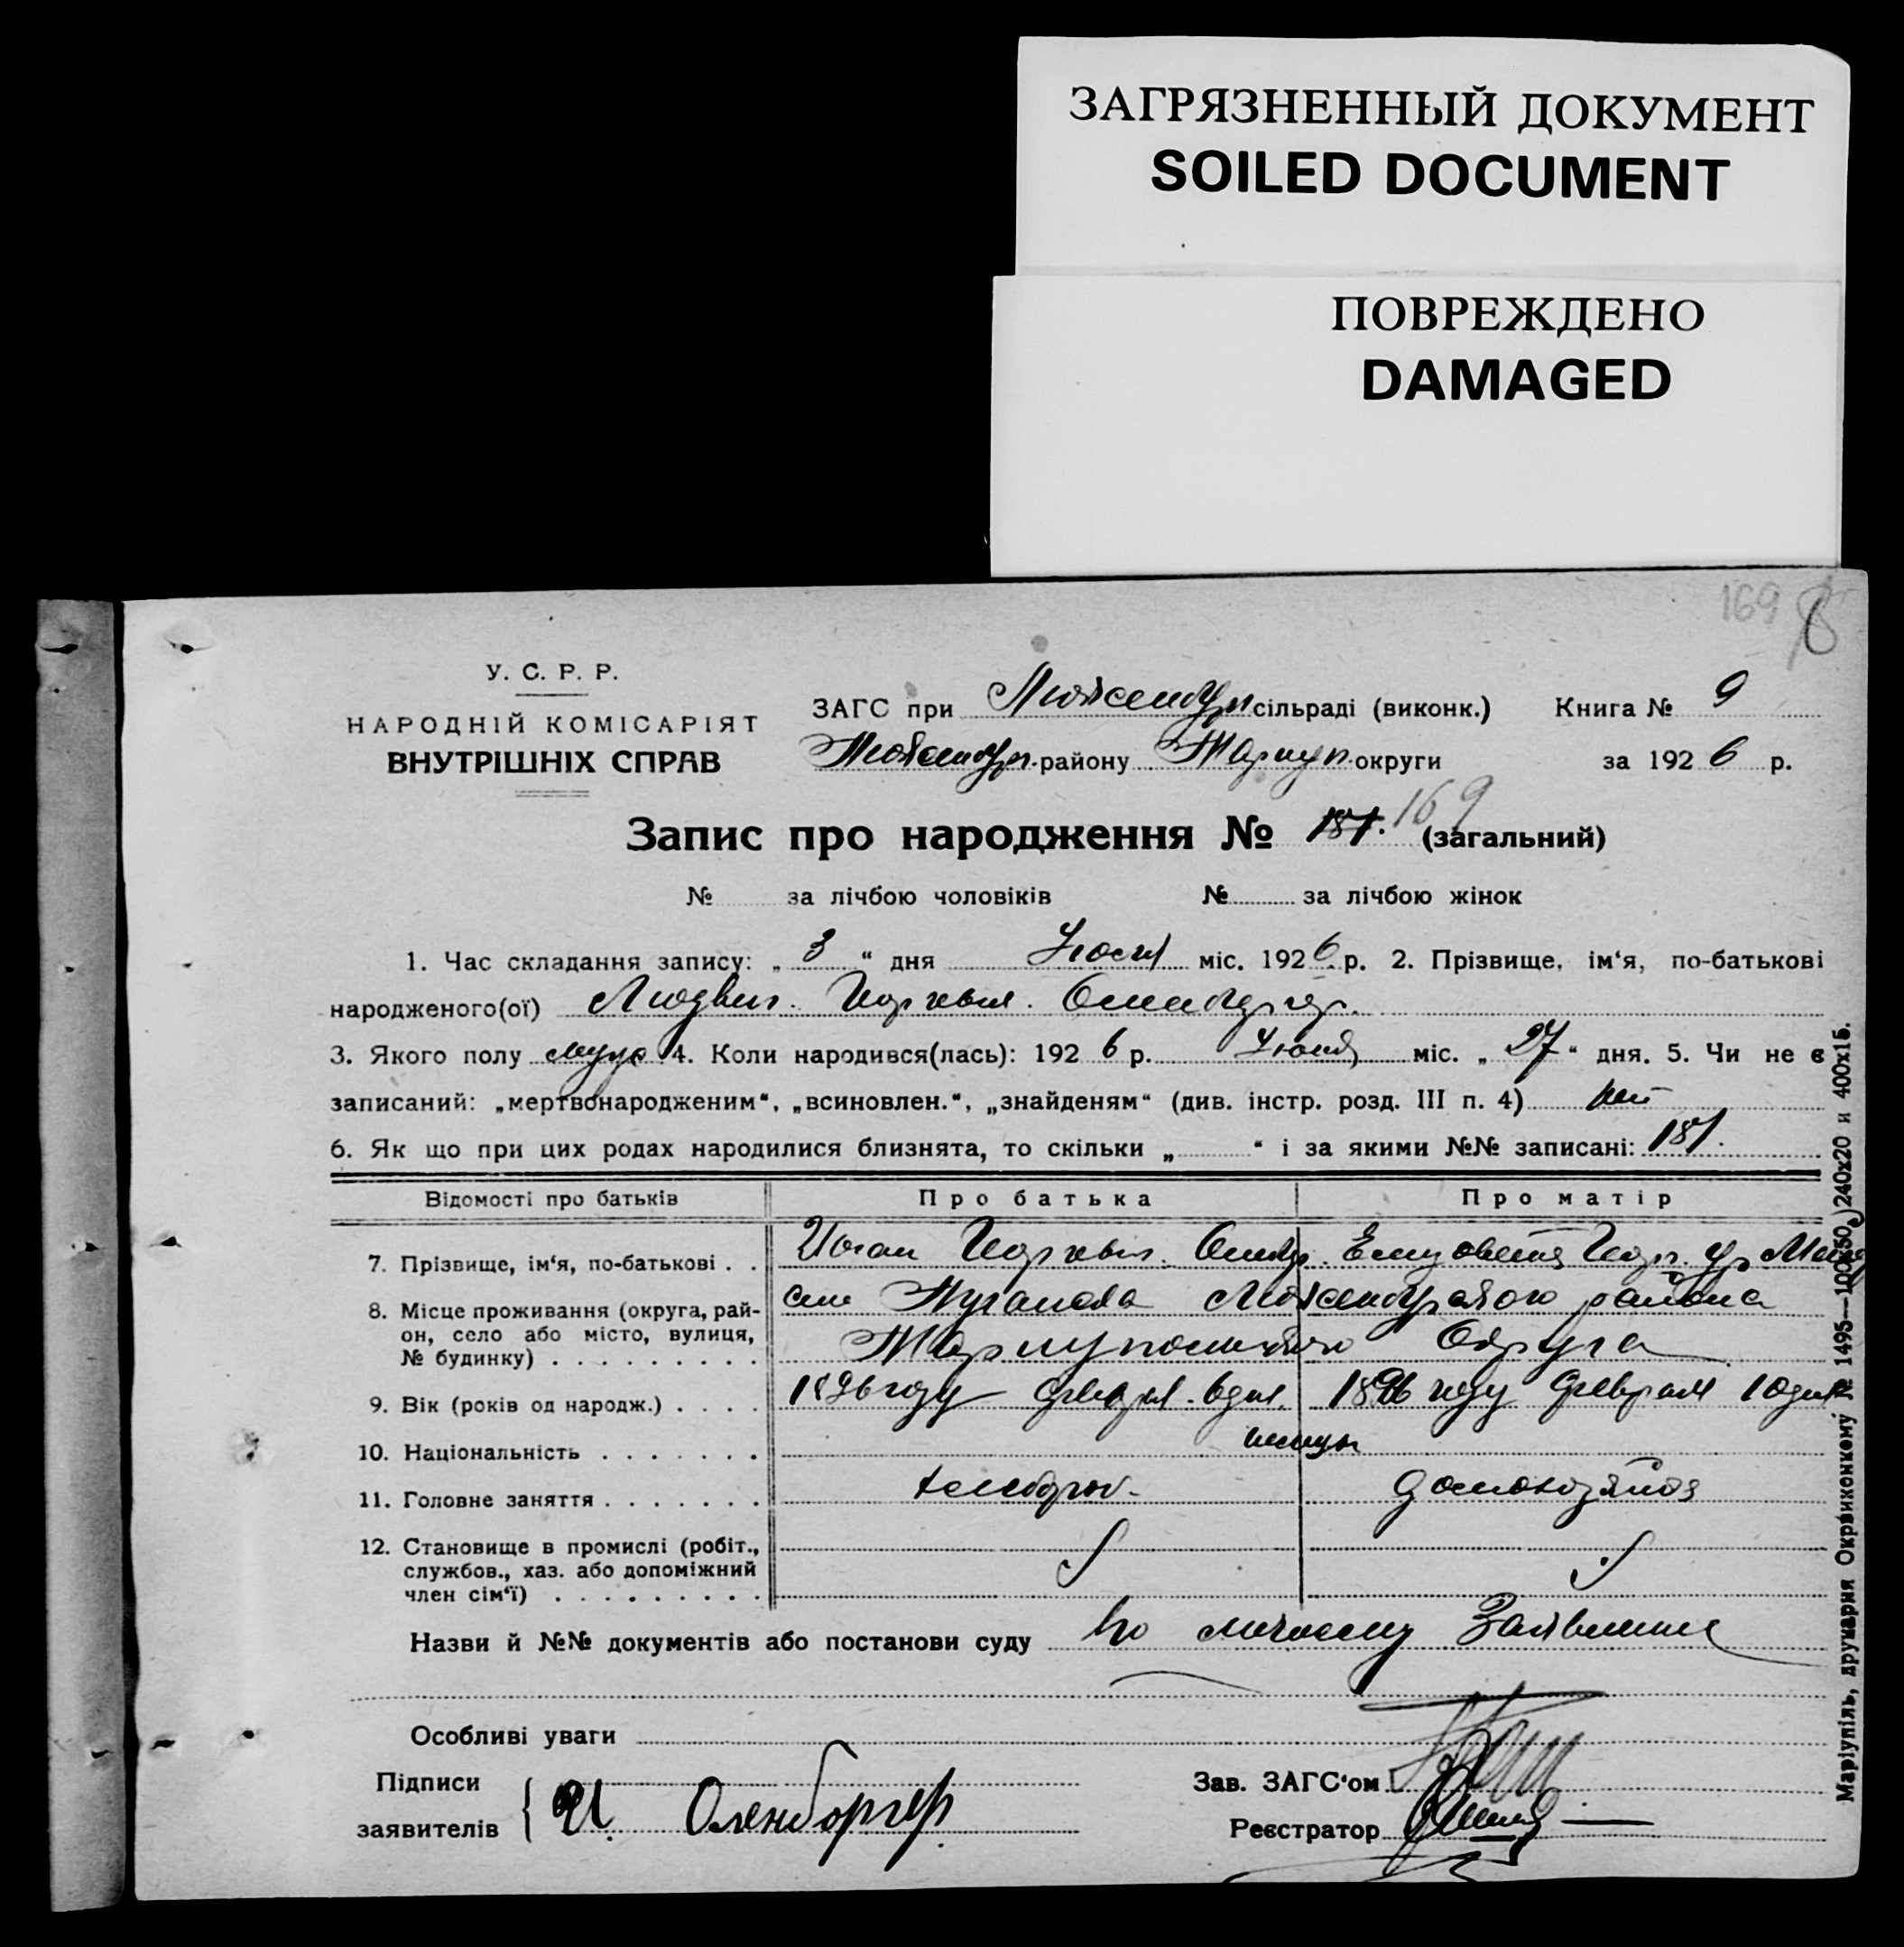 ЗАГРЯЗНЕННЫЙ ДОКУМЕНТ
SOILED DOCUMENT
ПОВРЕЖДЕНО
DAMAGED
169 8
У. С. Р. Р.
НАРОДНІЙ КОМІСАРІЯТ
ВНУТРІШНІХ СПРАВ
ЗАГС при сільраді (виконк.) Книга № 9
району Мариуп. округи за 1926 р.
Запис про народження № 187. 169 (загальний)
№ за лічбою чоловіків № за лічбою жінок
1. Час складання запису: „ 3 “ дня міс. 1926 р. 2. Прізвище, ім‘я, по-батькові
народженого(ої) Людвиг.
3. Якого полу муж 4. Коли народився(лась): 1926 р. Июня міс. „ 27 “ дня. 5. Чи не є
записаний: „мертвонародженим“, „всиновлен.“, „знайденям“ (див. інстр. розд. III п. 4) нет
6. Як що при цих родах народилися близнята, то скільки „ “ і за якими №№ записані: 187.
Відомості про батьків Про батька Про матір
7. Прізвище, ім‘я, по-батькові . . Иоган Елизовета
8. Місце проживання (округа, рай-
он, село або місто, вулиця,
№ будинку) . . . . . . . . . района
Округа
9. Вік (років од народж.) . . . . 1896 году 1896 году Февраля 10 дня
10. Національність . . . . . . . немцы
11. Головне заняття . . . . . . . хлебороб. домохозяйка
12. Становище в промислі (робіт.,
службов., хаз. або допоміжний
член сім‘ї) . . . . . . . . .
Назви й №№ документів або постанови суду по личному Заявлению
Особливі уваги
Підписи
заявителів { И. Оленборгер
Зав. ЗАГС‘ом
Реєстратор
Маріупіль, друкарня Окрвиконкому № 1495—100х50, 240х20 и 400х15.